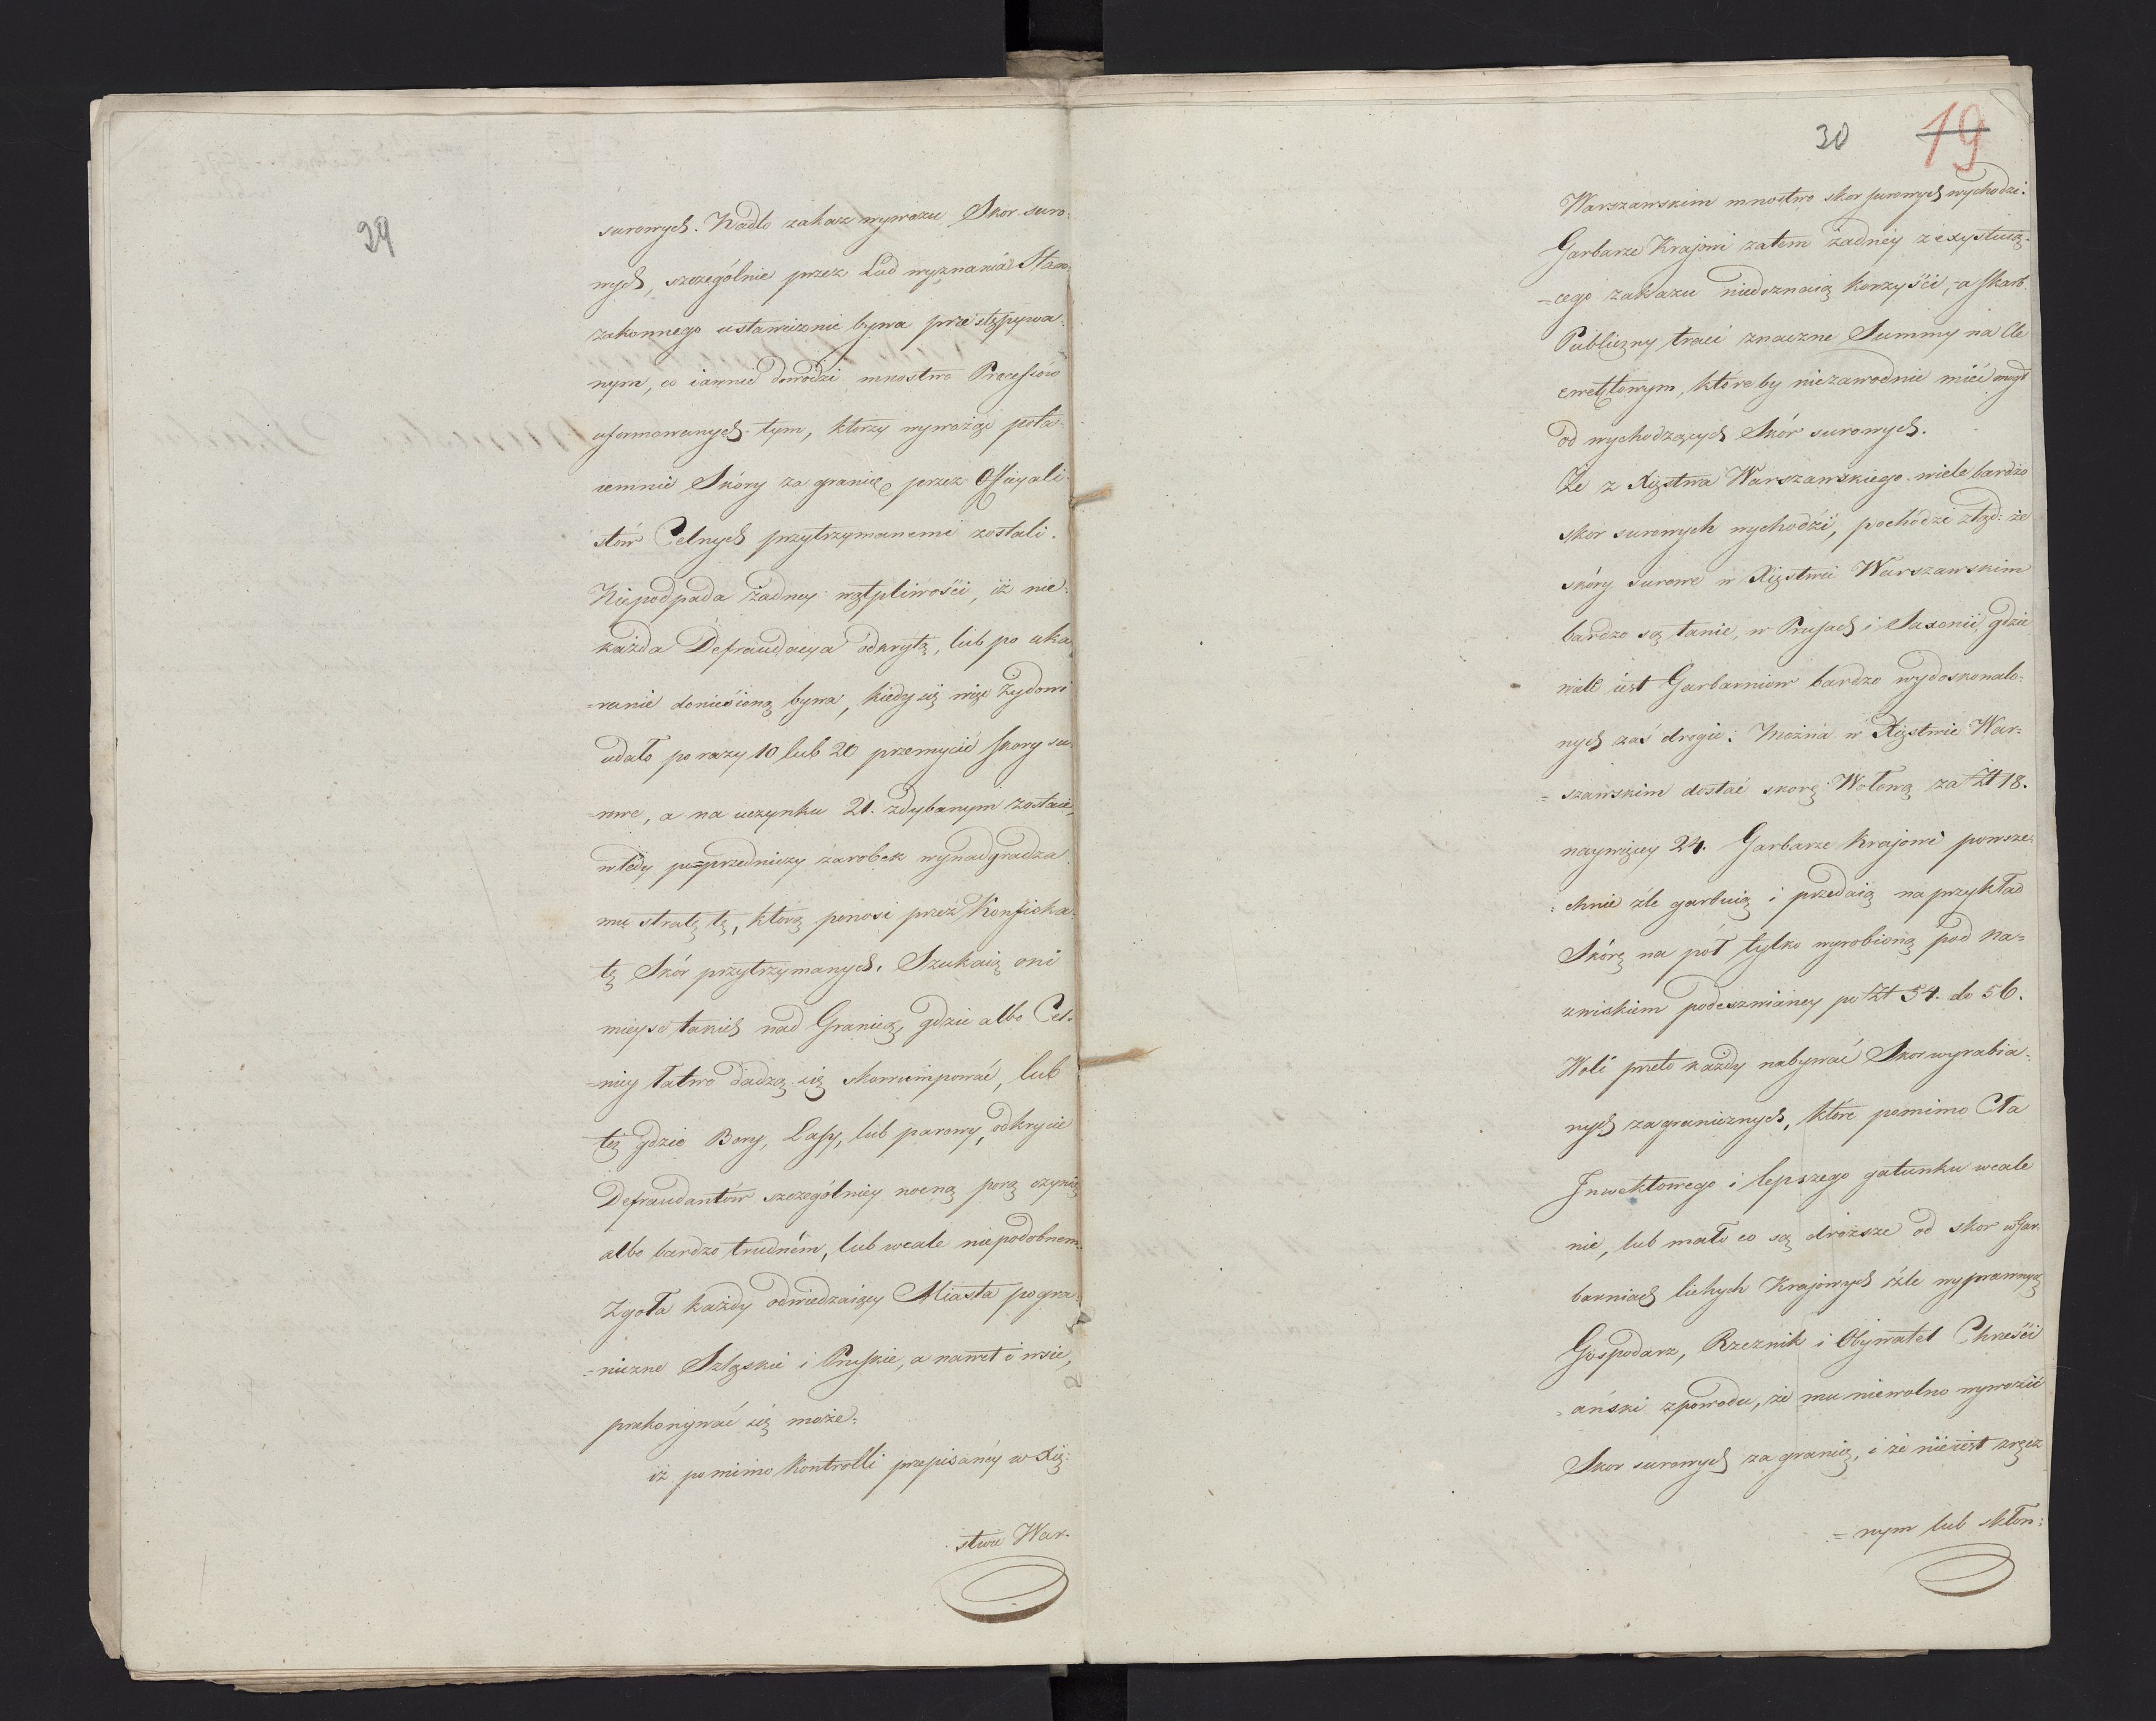 29
surowych. Nadto zakaz wywozu Skor suro-
wych, szczególnie przez Lud wyznania Staro-
zakonnego ustawicznie bywa przestępywa-
nym, co iawnie dowodzi mnostwo Processow
uformowanych tym, ktorzy wywożąc pota-
iemnie Skóry za granicę przez Officyali-
stów Celnych przytrzymanemi zostali.
Niepodpada żadney wątpliwości, iż nie-
każda Defraudacya odkrytą, lub po uka-
=ranie doniesioną bywa, kiedy się więc Żydowi
udało po razy 10 lub 20 przemycić skory su-
=rowe, a na uczynku 21. zdybanym zostaie,
wtedy poprzedniczy zarobek wynadgradza
mu stratę tę, ktorą ponosi przez Konfiska-
tę Skór przytrzymanych. Szukaią oni
mieysc takich nad Granicą, gdzie albo Cel-
=nicy łatwo dadzą się skorrumpować, lub
też gdzie Bory, Lasy, lub parowy, odkrycie
Defraudantów szczególniey nocną porą czynią
albo bardzo trudném, lub wcale niepodobnem.
Zgoła każdy odwiedzaiący Miasta pogra-
=niczne Szląskie i Pruskie, a nawet i wsie,
przekonywać się może.
iż pomimo Kontrolli przepisanéy w Xię-
stwie War-
30 19
Warszawskim mnostwo skor surowych wychodzi.
Garbarze Krajowi zatem żadnéy z exystuią-
=cego zakazu niedoznaią korzyści, a skarb
Publiczny traci znaczne Summy na Cle
ewektowym, które by niezawodnie mieć mogł
od wychodzących Skór surowych.
Że z Xięstwa Warszawskiego wiele bardzo
skor surowych wychodzi, pochodzi ztąd: że
skóry surowe w Xięstwie Warszawskim
bardzo są tanie, w Prusach i Saxonii, gdzie
wiele iest Garbarniow bardzo wydoskonalo-
nych zaś drogie. Można w Xięstwie War-
=szawskim dostać skorę Wołową za Zł 18.
naywięcey 24. Garbarze Krajowi powsze-
=chnie źle garbuią i przedaią na przykład
Skórę na pół tylko wyrobioną pod na=
zwiskiem podeszwianey po Zł 54. do 56.
Woli przeto każdy nabywać Skor wyrabia-
nych zagranicznych, które pomimo Cła
Inwektowego i lepszego gatunku wcale
nie, lub mało co są droższe od skor w Gar-
barniach lichych Krajowych źle wyprawnych
Gospodarz, Rzeznik i Obywatel Chrześci
=ański z powodu, że mu niewolno wywozić
Skor surowych za granicę, i że nie iest zręcz
=nym lub skłon-